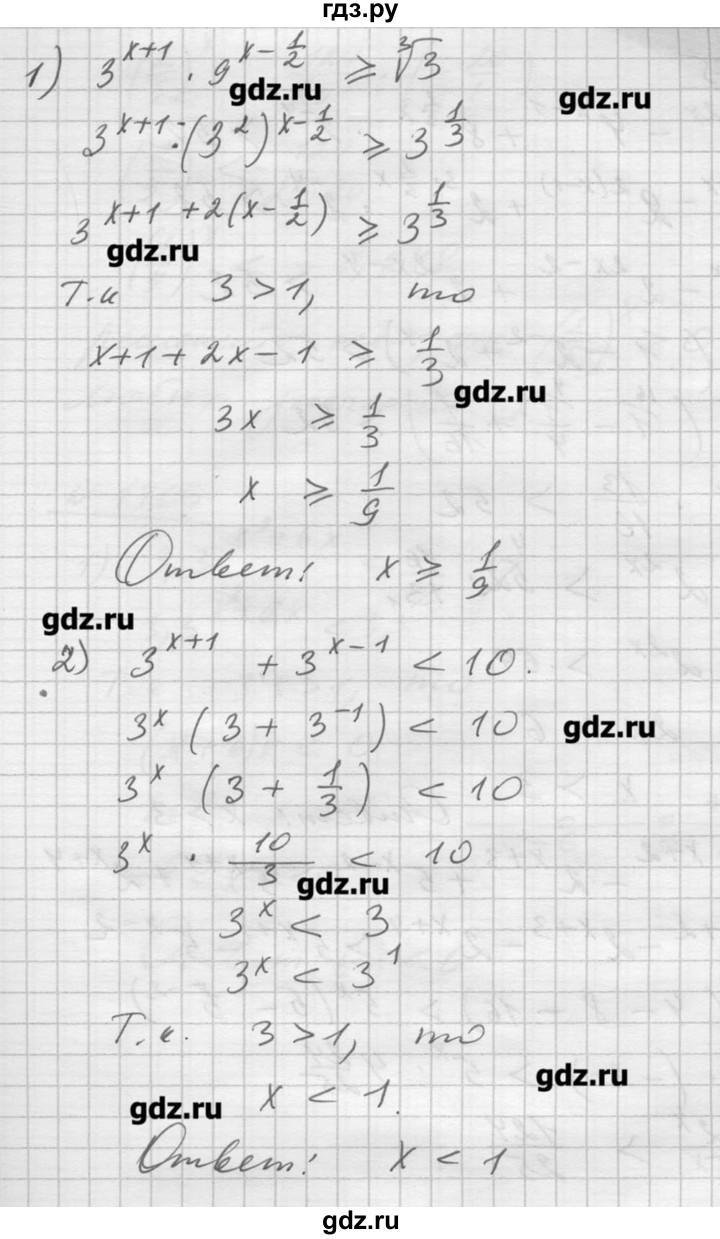 гдз.ру
1) 3^(x+1) · 9^(x-1/2) ⩾ ∛3
gdz.ru
gdz.ru
3^(x+1) · (3^2)^(x-1/2) ⩾ 3^(1/3)
3^(x+1+2(x-1/2)) ⩾ 3^(1/3)
gdz.ru
Т.к 3 > 1, то
x+1+2x-1 ⩾ 1/3
gdz.ru
3x ⩾ 1/3
x ⩾ 1/9
Ответ: x ⩾ 1/9
gdz.ru
2) 3^(x+1) + 3^(x-1) < 10.
3^x (3 + 3^(-1)) < 10
gdz.ru
3^x (3 + 1/3) < 10
3^x · 10/3 < 10
gdz.ru
3^x < 3
3^x < 3^1
Т.к. 3 > 1, то
gdz.ru
x < 1.
gdz.ru
Ответ: x < 1
gdz.ru